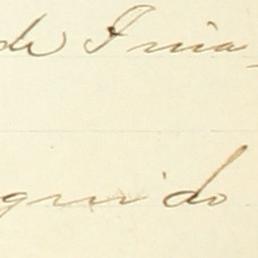 de Inia-
guido